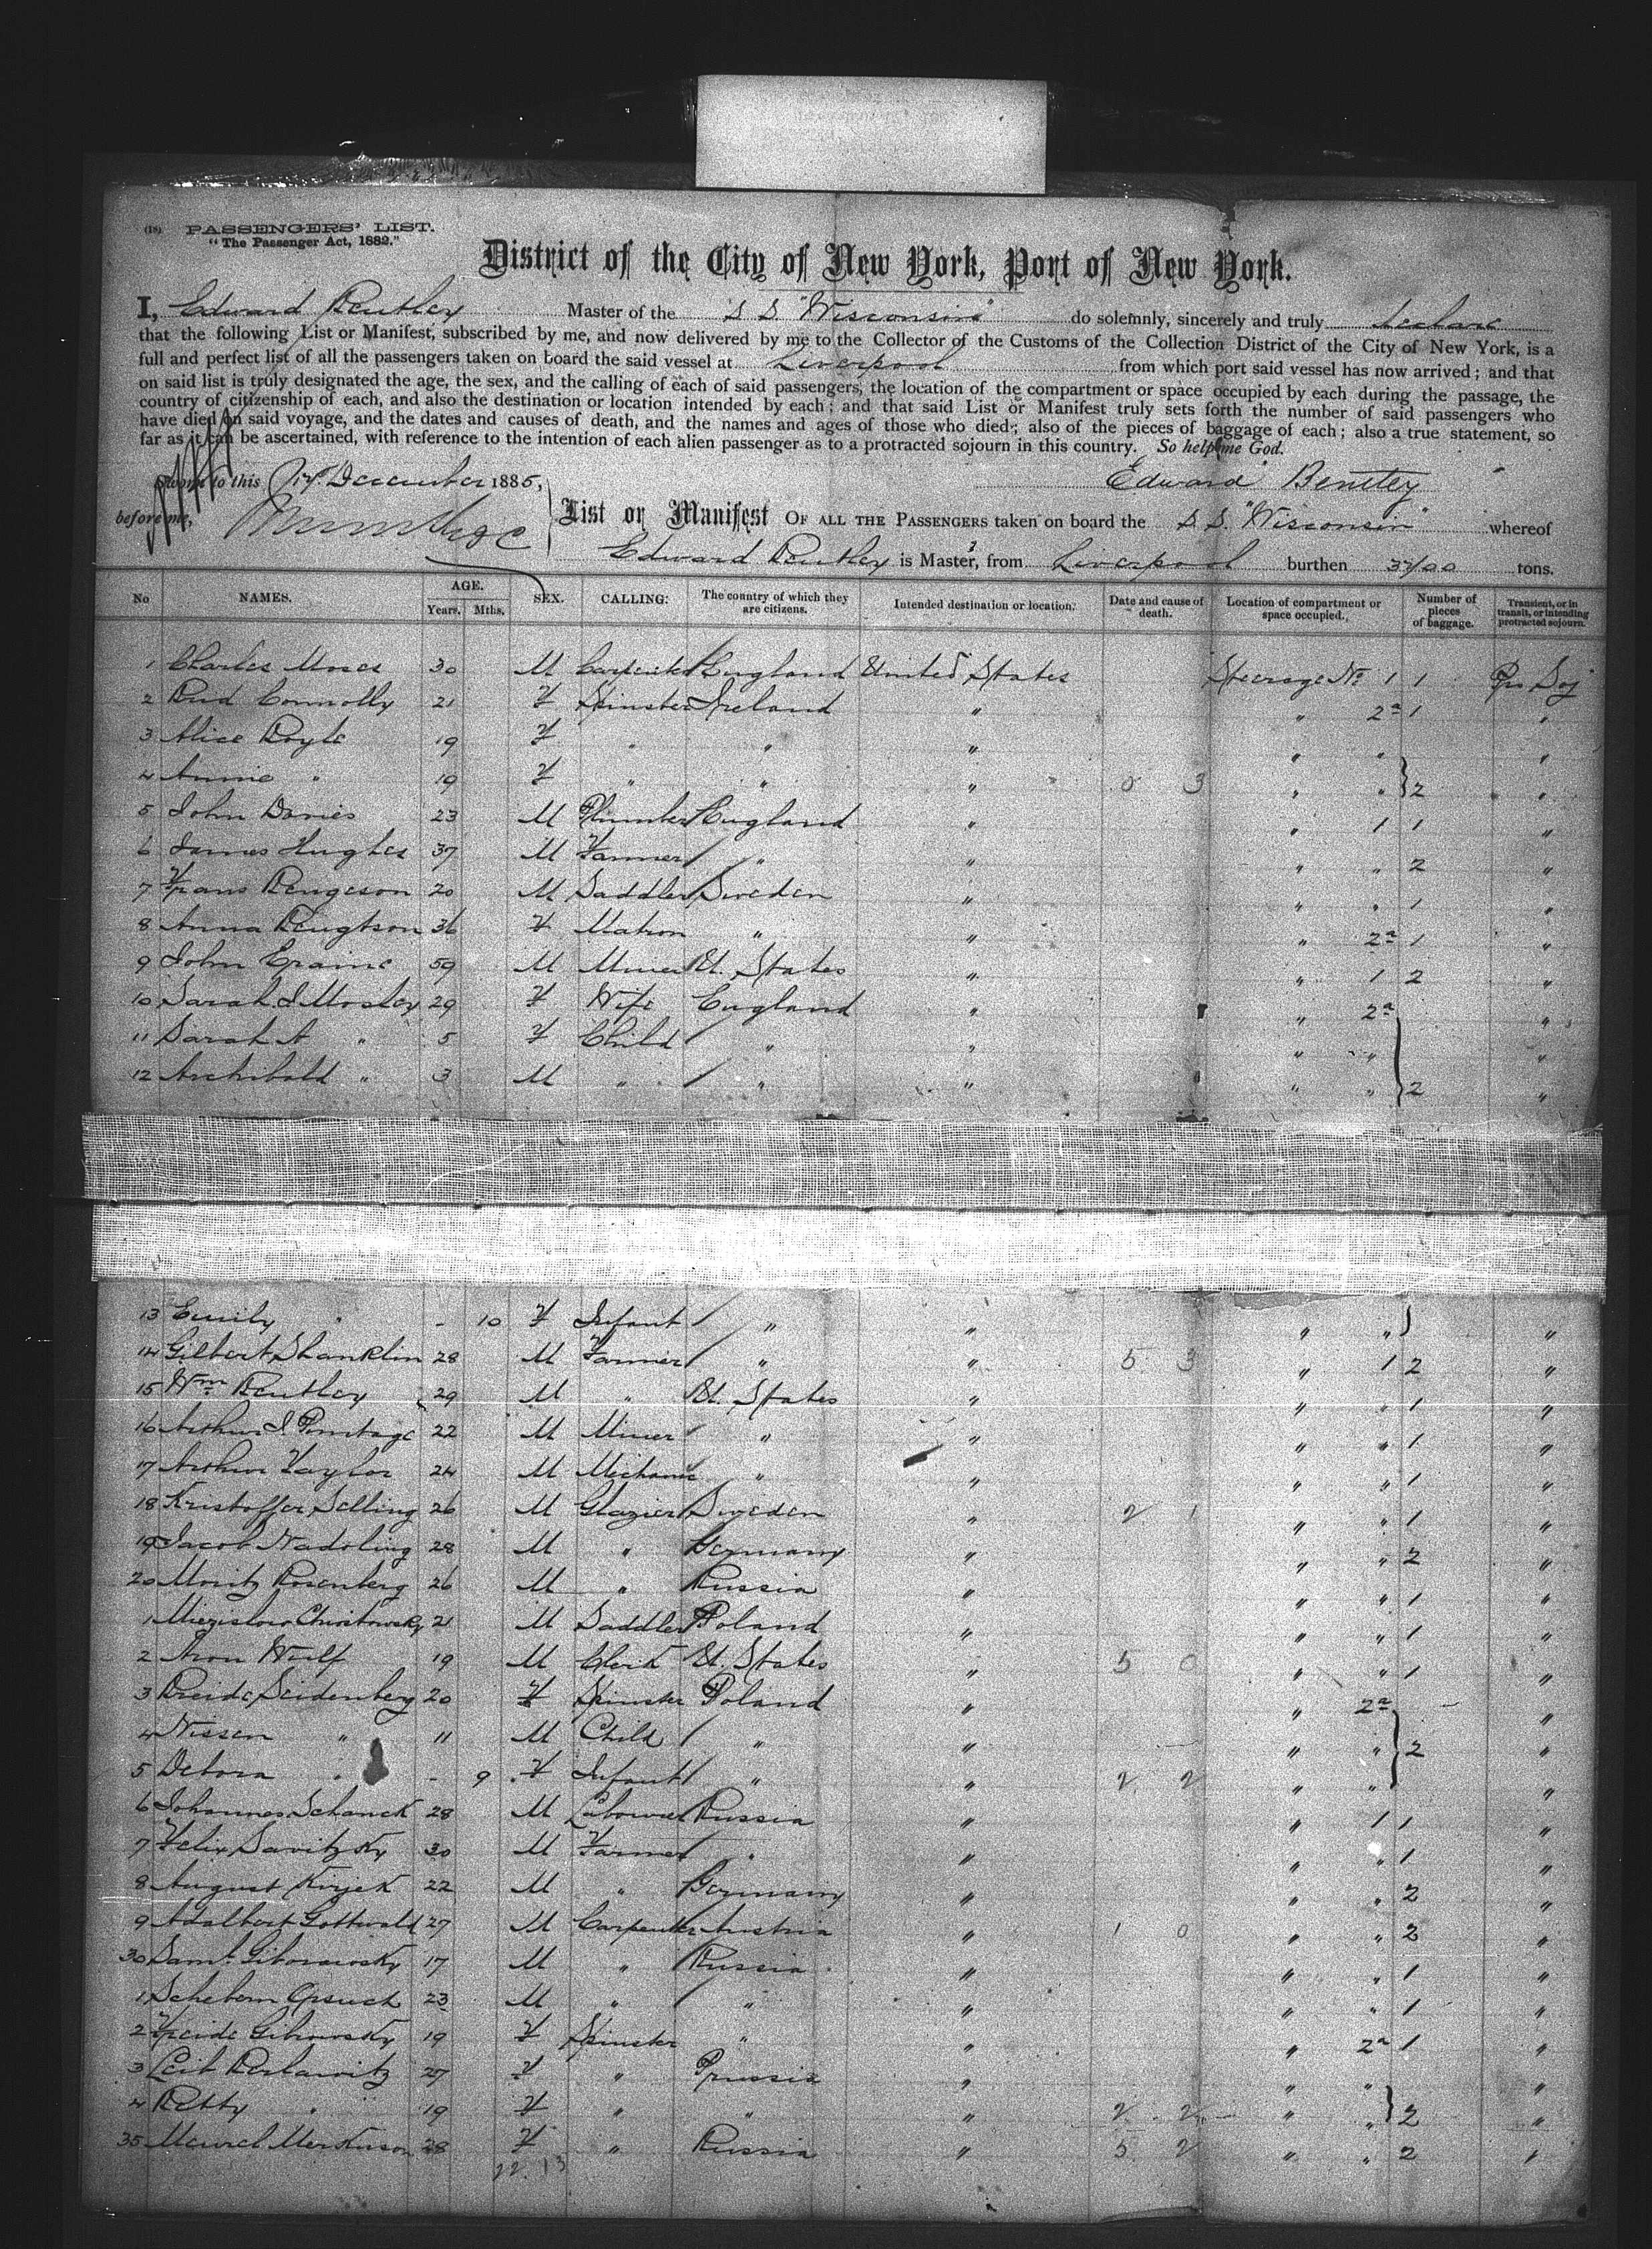 (18) PASSENGERS' LIST.
"The Passenger Act, 1882."
District of the City of New York, Port of New York.
I, Edward Bentley Master of the S S "Wisconsin" do solemnly, sincerely and truly declare
that the following List or Manifest, subscribed by me, and now delivered by me to the Collector of the Customs of the Collection District of the City of New York, is a
full and perfect list of all the passengers taken on board the said vessel at Liverpool from which port said vessel has now arrived; and that
on said list is truly designated the age, the sex, and the calling of each of said passengers, the location of the compartment or space occupied by each during the passage, the
country of citizenship of each, and also the destination or location intended by each; and that said List or Manifest truly sets forth the number of said passengers who
have died on said voyage, and the dates and causes of death, and the names and ages of those who died; also of the pieces of baggage of each; also a true statement, so
far as it can be ascertained, with reference to the intention of each alien passenger as to a protracted sojourn in this country. So help me God.
Sworn to this December 1885, Edward Bentley
before me, List or Manifest OF ALL THE PASSENGERS taken on board the S S. "Wisconsin" whereof
Edward Bentley is Master, from Liverpool burthen tons.
No NAMES. AGE. Years. Mths. SEX. CALLING. The country of which they are citizens. Intended destination or location. Date and cause of death. Location of compartment or space occupied. Number of pieces of baggage. Transient, or in transit, or intending protracted sojourn.
1 Charles Moses 30 M Carpenter England United States Steerage No 1 1 Pro Soj
2 Brid Connolly 21 F Spinster Ireland " " 2a 1 "
3 Alice Boyle 19 F " " " " " "
4 Annie " 19 F " " " 0 3 " " 2 "
5 John Davies 23 M Plumber England " " 1 1 "
6 James Hughes 37 M Farmer " " " " 2 "
7 Frans Bengeson 20 M Saddler Sweden " " " 1 "
8 Anna Bengtson 36 F Matron " " " 2a 1 "
9 John 59 M Miner U. States " " 1 2 "
10 Sarah J Mosley 29 F Wife England " " 2a "
11 Sarah A " 5 F Child " " " " "
12 Archibald " 3 M " " " " " 2 "
13 Emily " - 10 F Infant " " " " "
14 Gilbert Shanklin 28 M Farmer " " 5 3 " 1 2 "
15 Wm Bentley 29 M " U. States " " " 1 "
16 Arthur J 22 M Miner " " " " 1 "
17 Arthur Taylor 24 M Mechanic " " " " 1 "
18 Kristoffer Selling 26 M Glazier Sweden " 2 1 " " 1 "
19 Jacob Nadoling 28 M " Germany " " " 2 "
20 Moritz Rosenberg 26 M " Russia " " " 1 "
1 21 M Saddler Poland " " " 1 "
2 Aron Wulf 19 M Clerk U. States " 5 0 " " 1 "
3 Seidenberg 20 F Spinster Poland " " 2a - "
4 Nissen " 11 M Child " " " " 2 "
5 Debora " - 9 F Infant " " 2 2 " " "
6 Johannes Schanck 28 M Labourer Russia " " 1 1 "
7 Felix Savitzky 30 M Farmer " " " " 1 "
8 August 22 M " Germany " " " 2 "
9 Adalbert Gottwald 27 M Carpenter Austria " 1 0 " " 2 "
30 Saml 17 M " Russia " " " 1 "
1 23 M " " " " " 1 "
2 19 F Spinster " " " 2a 1 "
3 Leib 27 F " Prussia " " " "
4 Betty " 19 F " " " 2 2 " " 2 "
35 28 F " Russia " 5 2 " " 2 "
22. 13